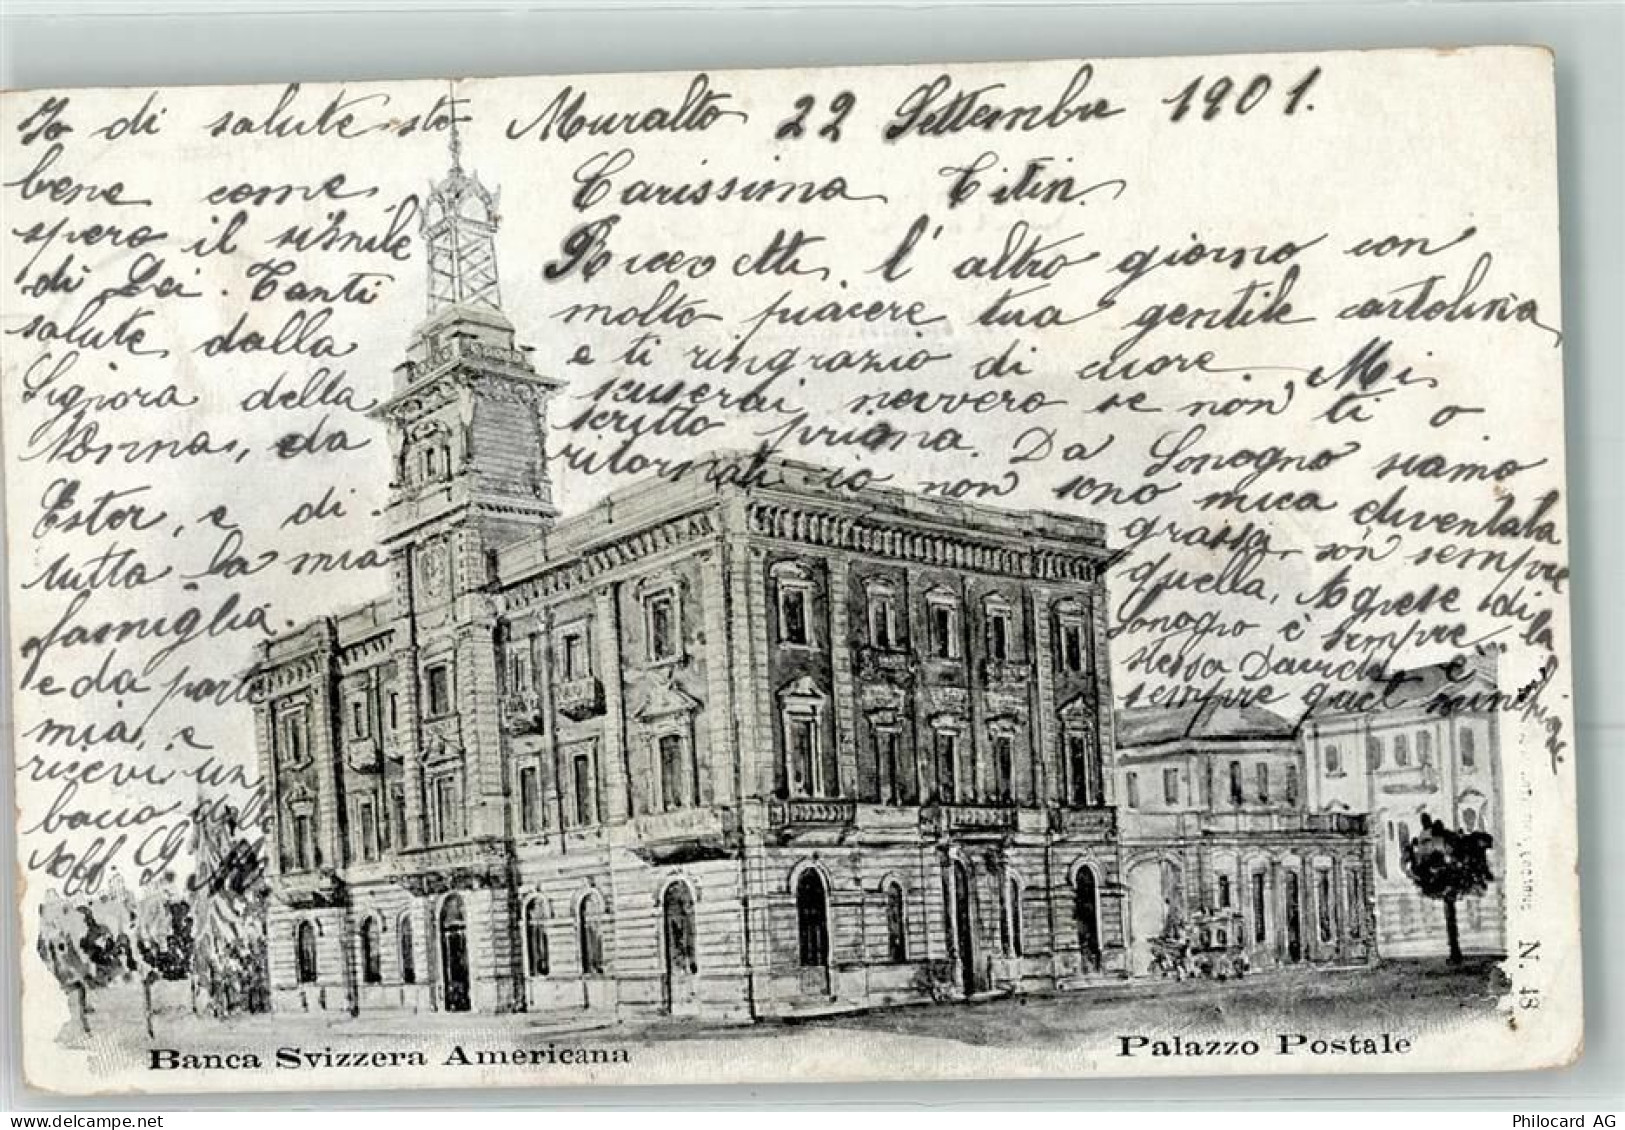 Muralto 22 Settembre 1901.
Carissima Titin.
Ricevetti l'altro giorno con
molto piacere tua gentile cartolina
e ti ringrazio di cuore. Mi
scuserai nevvero se non ti o
scritto prima. Da Sonogno siamo
ritornati io non sono mica diventata
grassa son sempre
quella, Agnese di
Sonogno è sempre la
stessa Davide è
sempre quel
Io di salute sto
bene come
spero il simile
di Lei. Tanti
salute dalla
Signora della
Nonna, da
Ester, e di
tutta la mia
famiglia.
e da parte
mia, e
ricevi un
bacio dalla
Aff. G. M.
Banca Svizzera Americana
Palazzo Postale
N. 48
Philocard AG